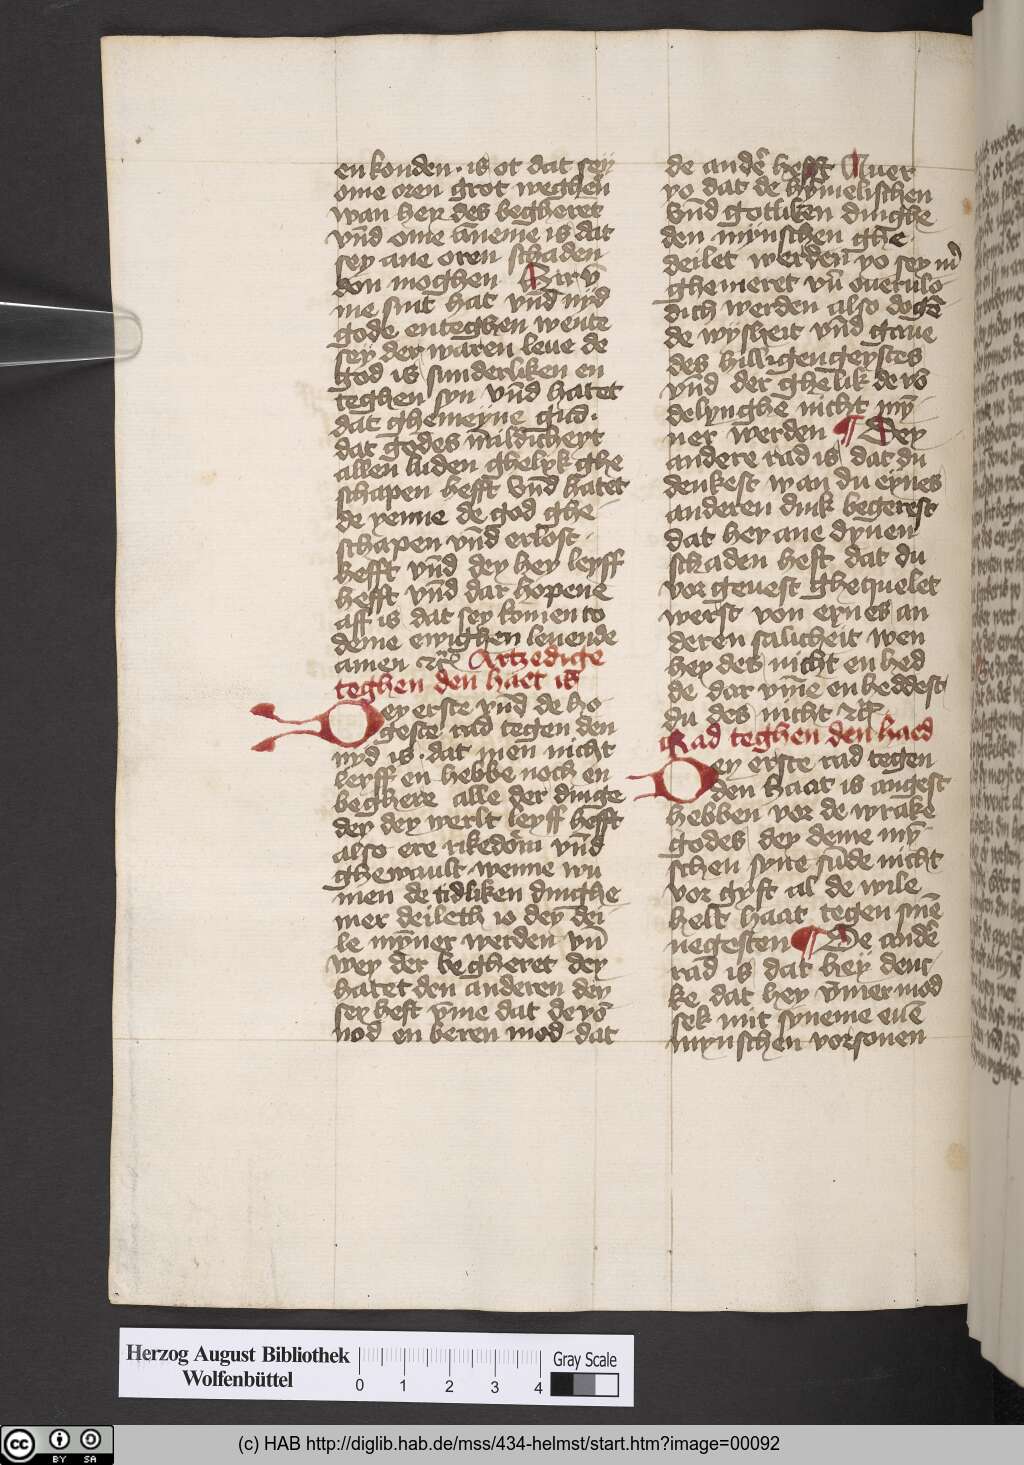 en konden · is ot dat sey
ome oren grot weghen
wan her des begheret
vn̄d ome āneme is dat
sey ane oren schaden
don moghen
me sint hat vn̄d nyd
gode enteghen wente
sey der waren leue de
god is sunderliken en
teghen syn vn̄d hatet
dat ghemeyne gud̄ ·
dat godes mildicheyt
allen luden ghelyk ghe
schapen hefft vn̄d hatet
de yenne de god ghe
schapen vn̄d erlost ·
hefft vn̄d dey hey leyff
hefft vn̄d dar hopene
aff is dat sey komen to
deme ewighen leuende
amen Artzedige
teghen den haet is
Dey erste vn̄d de ho
geste rad tegen den
nyd is · dat men nicht
leyff en hebbe noch en
beghere alle der dinge
dey dey werlt leyff hefft
also ere rikedom vn̄d
ghewault wenne wu
men de tidliken dinghe
mer deileth io dey dei
le mȳner werden vn̄
wey der begheret dey
hatet den anderen dey
sey heft vm̄e dat de yo
nod en beren mod · dat
de ander hefft Auer
yo dat de hymelischen
vn̄d gotliken dinghe
den mynschen ghe
deilet werden yo sey m̄
ghemeret vn̄ ouerulo
dich werden also doge
de wysheit vn̄d gaue
des hilligengeystes
vn̄d der ghelik de yo
delynghe nicht mȳ
ner werden ¶ Dey
andere rad is dat du
denkest wan du eynes
anderen dink begerest
dat hey ane dynen
schaden heft dat du
vorgeuest ghequelet
werst von eynes an
deren salicheit wen
hey des nicht en hed
de dar vm̄e en heddest
du des nicht
Rad teghen den haed
Dey erste rad tegen
den haat is angest
hebben vor de wrake
godes dey deme mȳ
schen syne sūde nicht
vor gyft al de wile
helt haat tegen sinē
negesten ¶ De ander
rad is dat hey denc
ke dat hey ȳmer mod
sek mit syneme euē
mynschen vorsonen
Herzog August Bibliothek
Wolfenbüttel
0 1 2 3 4
Gray Scale
cc BY SA
(c) HAB http://diglib.hab.de/mss/434-helmst/start.htm?image=00092